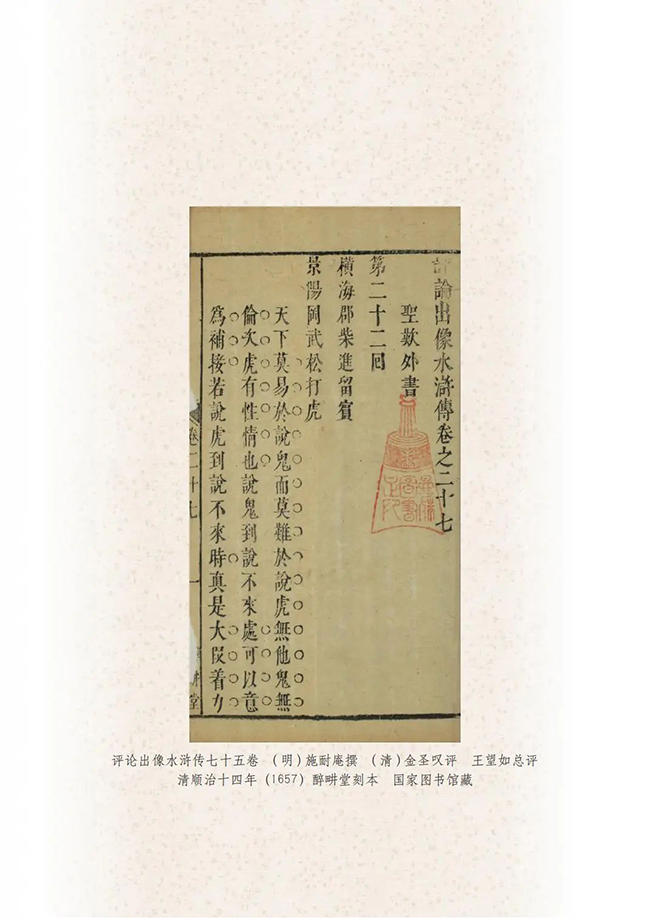 評論出像水滸傳卷之二十七
聖歎外書
第二十二回
橫海郡柴進留賓
景陽岡武松打虎
天下莫易於說鬼而莫難於說虎無他鬼無
倫次虎有性情也說鬼到說不來處可以意
爲補接若說虎到說不來時真是大段着力
卷二十七
一
堂
评论出像水浒传七十五卷 （明）施耐庵撰 （清）金圣叹评 王望如总评
清顺治十四年（1657）醉畊堂刻本 国家图书馆藏